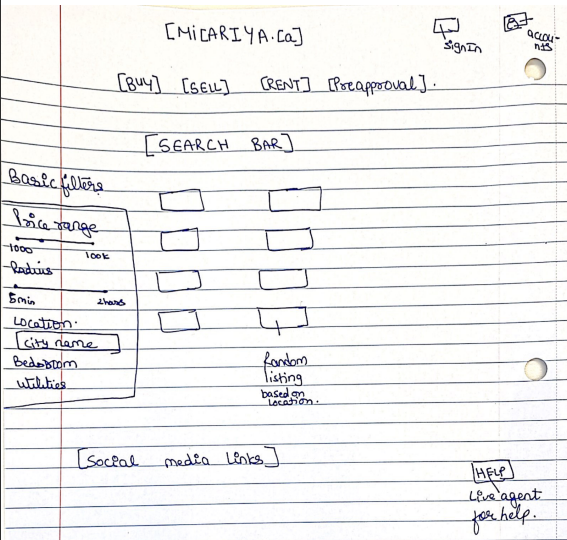 [MiCARIYA.Ca]
SignIn
accou-
nts
[BUY] [SELL] [RENT] [Preapproval].
[SEARCH BAR]
Basic filters
Price range
1000 100k
Radius
5min 2hours
Location.
City name
Bedroom
Utilities
Random
listing
based on
Location.
[Social media Links]
HELP
Live agent
for help.